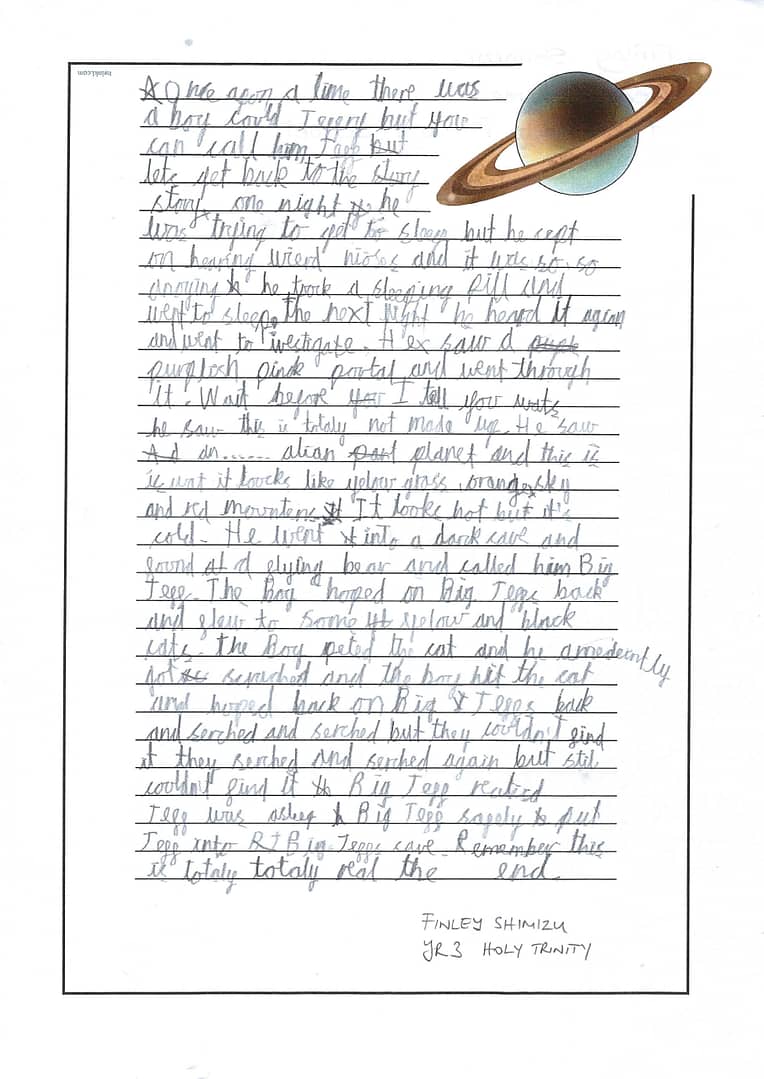 twinkl.com
Once apon a time there was
a boy could Jeffery but you
can call him Jeff but
lets get back to the story
story. one night he
was trying to get to sleep but he cept
on hearing wierd nioses and it was so so
anoying he toock a sleeping pill and
went to sleep. The next night he heard it again
and went to ivestigate. H ex saw a purpl
purplish pink portal and went through
it. Wait before you I tell you wats
he saw this is totaly not made up. He saw
A d an...... alian part planet and this is
is wat it loocks like yelow grass, orange sky
and red mountens It looks hot but it's
cold. He went into a darck cave and
found a flying bear and called him Big
Jeff. The Boy hoped on Big Jeffs back
and flew to some yelow and black
cats. The Boy peted the cat and he
got scrached and the boy hit the cat
and hoped back on Big Jeffs back
and serched and serched but they couldn't find
it they serched and serched again but stil
couldn't find it Big Jeff realised
Jeff was asleep Big Jeff safely put
Jeff into Big Jeffs cave. Remember this
is totaly totaly real the end.
FINLEY SHIMIZU
YR 3 HOLY TRINITY